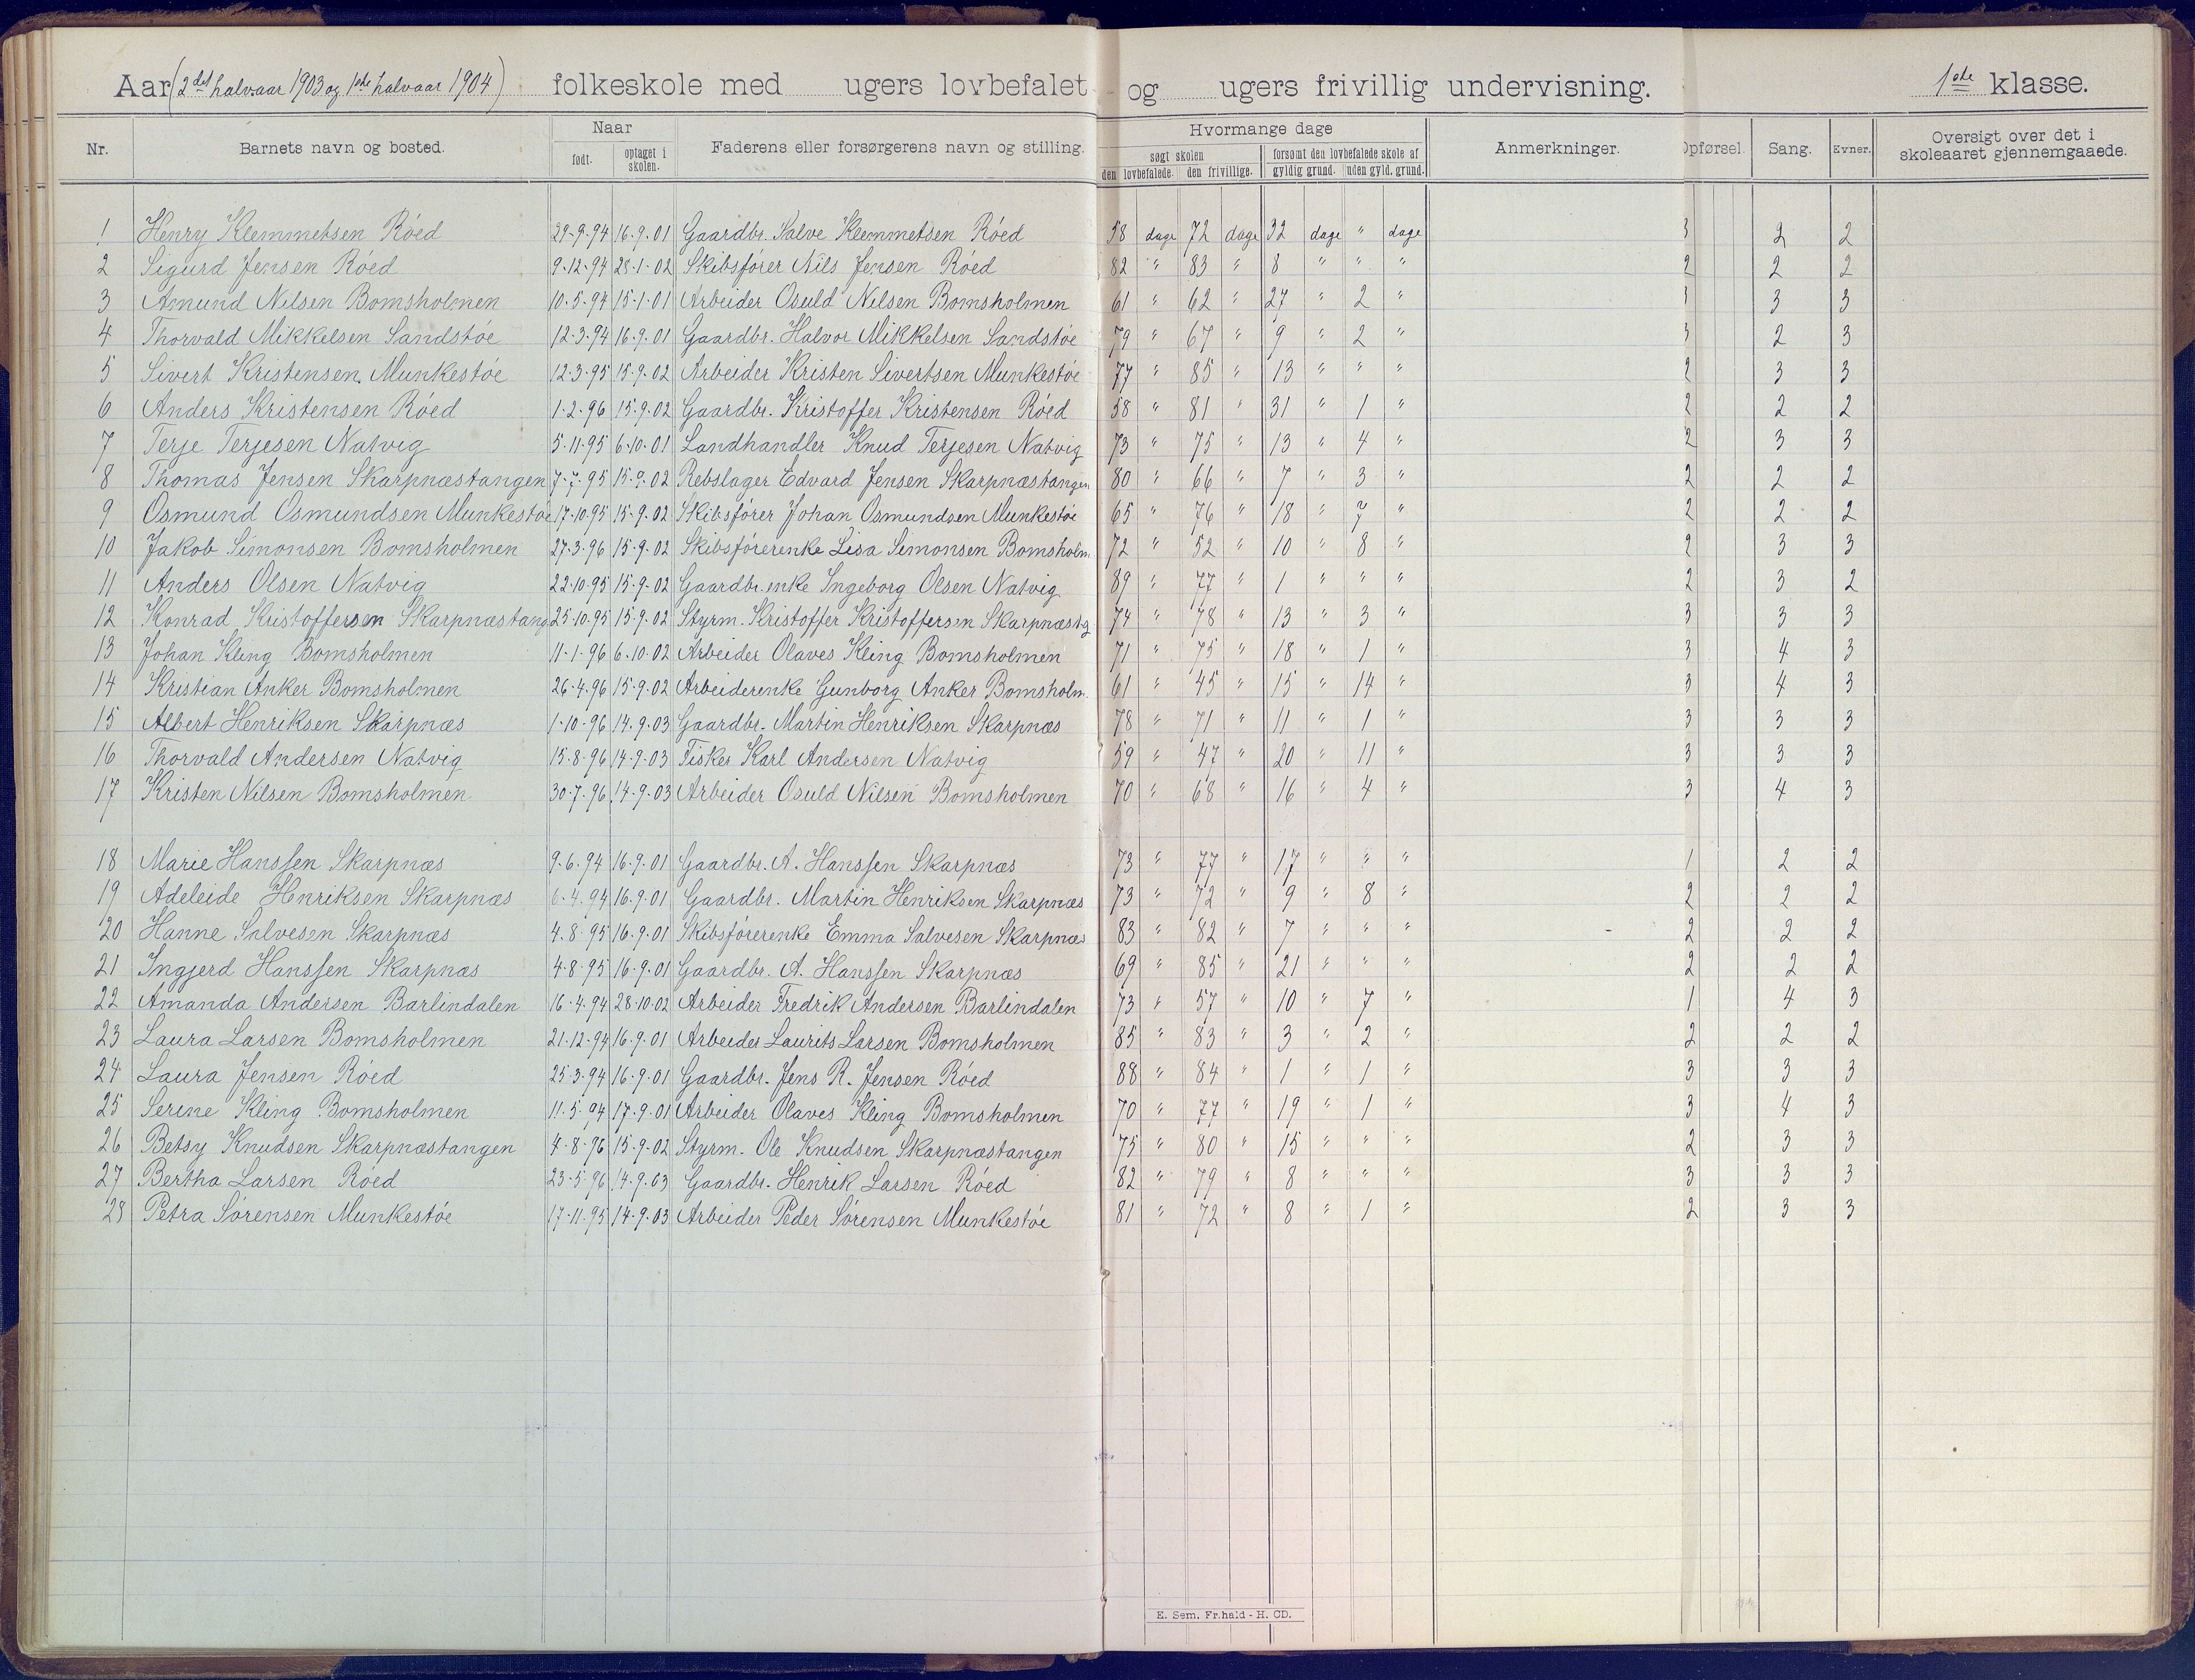 Aar (2det halvaar 1903 og 1ste halvaar 1904) folkeskole med ugers lovbefalet og ugers frivillig undervisning. 1ste klasse.
Nr. Barnets navn og bosted. Naar født. optaget i skolen. Faderens eller forsørgerens navn og stilling. Hvormange dage søgt skolen den lovbefalede. den frivillige. forsømt den lovbefalede skole af gyldig grund. uden gyld. grund. Anmerkninger. Opførsel. Sang. Evner. Oversigt over det i skoleaaret gjennemgaaede.
1 Henry Klemmetsen Röed 29-9-94 16-9-01 Gaardbr. Salve Klemmetsen Röed 58 dage 72 dage 32 dage " dage 3 2 2
2 Sigurd Jensen Röed 9-12-94 28-1-02 Skibsförer Nils Jensen Röed 82 " 83 " 8 " " " 2 2 2
3 Amund Nilsen Bomsholmen 10-5-94 15-1-01 Arbeider Osuld Nilsen Bomsholmen 61 " 62 " 27 " 2 " 3 3
4 Thorvald Mikkelsen Sandstöe 12-3-94 16-9-01 Gaardbr. Halvor Mikkelsen Sandstöe 79 " 67 " 9 " 2 " 3 2 3
5 Sivert Kristensen Munkestöe 12-3-95 15-9-02 Arbeider Kristen Sivertsen Munkestöe 77 " 85 " 13 " " " 2 3 3
6 Anders Kristensen Röed 1-2-96 15-9-02 Gaardbr. Kristoffer Kristensen Röed 58 " 81 " 31 " 1 " 2 2 2
7 Terje Terjesen Natvig 5-11-95 6-10-01 Landhandler Knud Terjesen Natvig 73 " 75 " 13 " 4 " 2 3 3
8 Thomas Jensen Skarpnæstangen 7-7-95 15-9-02 Rebslager Edvard Jensen Skarpnæstangen 80 " 66 " 7 " 3 " 2 2 2
9 Osmund Osmundsen Munkestöe 17-10-95 15-9-02 Skibsförer Johan Osmundsen Munkestöe 65 " 76 " 18 " 7 " 2 2 2
10 Jakob Simonsen Bomsholmen 27-3-96 15-9-02 Skibsförerenke Lisa Simonsen Bomsholm. 72 " 52 " 10 " 8 " 2 3 3
11 Anders Olsen Natvig 22-10-95 15-9-02 Gaardbr.enke Ingeborg Olsen Natvig 89 " 77 " 1 " " " 2 3 2
12 Konrad Kristoffersen Skarpnæstang 25-10-95 15-9-02 Styrm. Kristoffer Kristoffersen Skarpnæstg 74 " 78 " 13 " 3 " 3 3 3
13 Johan Kling Bomsholmen 11-1-96 6-10-02 Arbeider Olaves Kling Bomsholmen 71 " 75 " 18 " 1 " 3 4 3
14 Kristian Anker Bomsholmen 26-4-96 15-9-02 Arbeiderenke Gunborg Anker Bomsholm. 61 " 45 " 15 " 14 " 3 4 3
15 Albert Henriksen Skarpnæs 1-10-96 14-9-03 Gaardbr. Martin Henriksen Skarpnæs 78 " 71 " 11 " 1 " 3 3 3
16 Thorvald Andersen Natvig 15-8-96 14-9-03 Fisker Karl Andersen Natvig 59 " 47 " 20 " 11 " 3 3 3
17 Kristen Nilsen Bomsholmen 30-7-96 14-9-03 Arbeider Osuld Nilsen Bomsholmen 70 " 68 " 16 " 4 " 3 4 3
18 Marie Hanssen Skarpnæs 9-6-94 16-9-01 Gaardbr. A. Hanssen Skarpnæs 73 " 77 " 17 " " " 1 2 2
19 Adeleide Henriksen Skarpnæs 6-4-94 16-9-01 Gaardbr. Martin Henriksen Skarpnæs 73 " 72 " 9 " 8 " 2 2 2
20 Hanne Salvesen Skarpnæs 4-8-95 16-9-01 Skibsförerenke Emma Salvesen Skarpnæs 83 " 82 " 7 " " " 2 2 2
21 Ingjerd Hanssen Skarpnæs 4-8-95 16-9-01 Gaardbr. A. Hanssen Skarpnæs 69 " 85 " 21 " " " 2 2 2
22 Amanda Andersen Barlindalen 16-4-94 28-10-02 Arbeider Fredrik Andersen Barlindalen 73 " 57 " 10 " 7 " 1 4 3
23 Laura Larsen Bomsholmen 21-12-94 16-9-01 Arbeider Laurits Larsen Bomsholmen 85 " 83 " 3 " 2 " 2 2 2
24 Laura Jensen Röed 25-3-94 16-9-01 Gaardbr. Jens R. Jensen Röed 88 " 84 " 1 " 1 " 3 3 3
25 Serine Kling Bomsholmen 11-5-94 17-9-01 Arbeider Olaves Kling Bomsholmen 70 " 77 " 19 " 1 " 3 4 3
26 Betsy Knudsen Skarpnæstangen 4-8-96 15-9-02 Styrm. Ole Knudsen Skarpnæstangen 75 " 80 " 15 " " " 2 3 3
27 Bertha Larsen Röed 23-5-96 14-9-03 Gaardbr. Henrik Larsen Röed 82 " 79 " 8 " " " 3 3 3
28 Petra Sörensen Munkestöe 17-11-95 14-9-03 Arbeider Peder Sörensen Munkestöe 81 " 72 " 8 " 1 " 2 3 3
E. Sem. Fr.hald - H. CD.